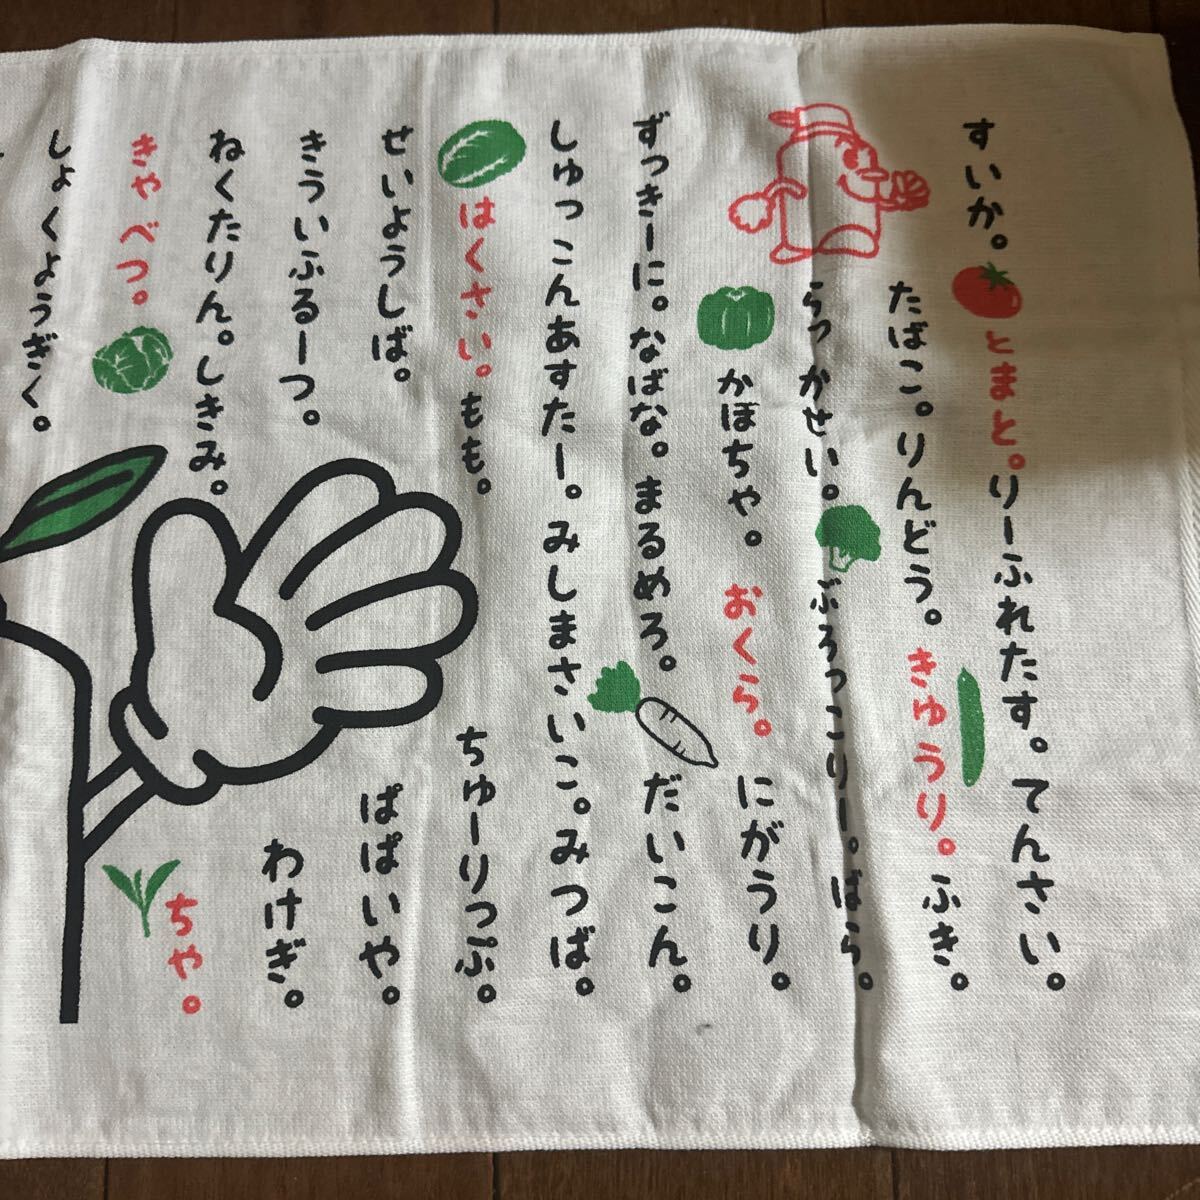 すいか。とまと。りーふれたす。てんさい。
たばこ。りんどう。きゅうり。ふき。
らっかせい。ぶろっこりー。ばら。
かぼちゃ。おくら。にがうり。
ずっきーに。なばな。まるめろ。だいこん。
しゅっこんあすたー。みしまさいこ。みつば。
はくさい。もも。ちゅーりっぷ。
せいようしば。ぱぱいや。
きういふるーつ。わけぎ。
ねくたりん。しきみ。ちゃ。
きゃべつ。
しょくようぎく。